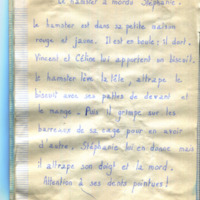 Le hamster a mordu Stéphanie.
Le hamster est dans sa petite maison
rouge et jaune. Il est en boule ; il dort.
Vincent et Céline lui apportent un biscuit.
Le hamster lève la tête, attrape le
biscuit avec ses pattes de devant et
le mange. Puis il grimpe sur les
barreaux de sa cage pour en avoir
d'autre. Stéphanie lui en donne mais
il attrape son doigt et la mord.
Attention à ses dents pointues !